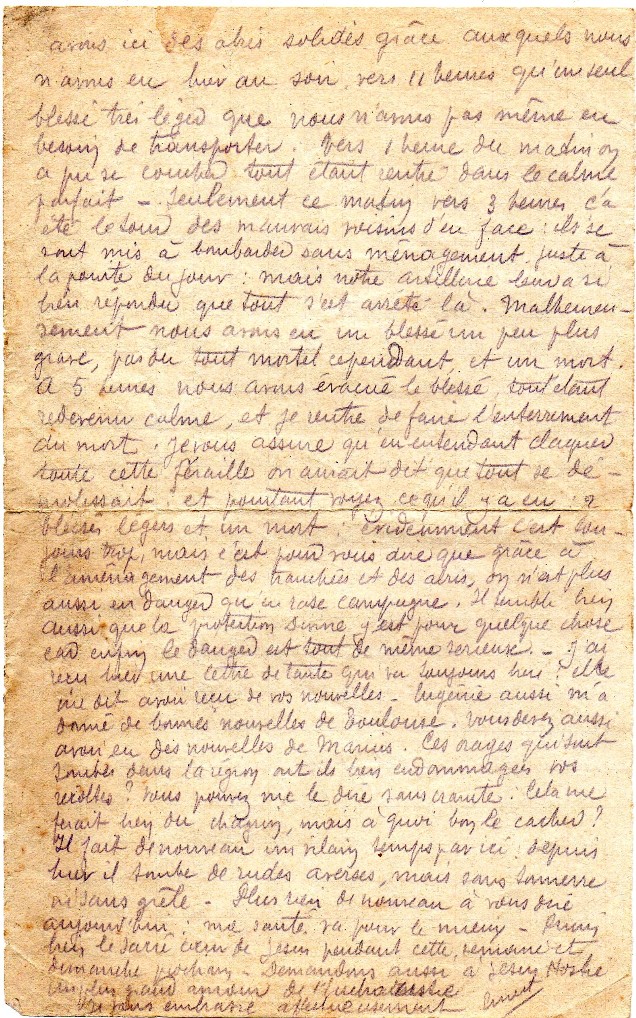 avons ici des abris solides grâce auxquels nous
n'avons eu hier au soir vers 11 heures qu'un seul
blessé très léger que nous n'avons pas même eu
besoin de transporter. Vers 1 heure du matin on
a pu se coucher tout étant rentré dans le calme
parfait - Seulement ce matin vers 3 heures ç'a
été le tour des mauvais voisins d'en face : ils se
sont mis à bombarder sans ménagement juste à
la pointe du jour : mais notre artillerie leur a si
bien répondu que tout s'est arrêté là. Malheureu-
sement nous avons eu un blessé un peu plus
grave, pas du tout mortel cependant et un mort.
A 5 heures nous avons évacué le blessé, tout étant
redevenu calme, et je rentre de faire l'enterrement
du mort. Je vous assure qu'en entendant claquer
toute cette féraille on aurait dit que tout se dé-
molissait : et pourtant voyez ce qu'il y a eu : 2
blessés légers et un mort. Evidemment c'est tou-
jours trop, mais c'est pour vous dire que grâce à
l'aménagement des tranchées et des abris, on n'est plus
aussi en danger qu'en rase campagne. Il semble bien
aussi que la protection Divine y est pour quelque chose
car enfin le danger est tout de même sérieux. - J'ai
reçu hier une lettre de tante qui va toujours bien : elle
me dit avoir reçu de vos nouvelles - Eugénie aussi m'a
donné de bonnes nouvelles de Toulouse. Vous devez aussi
avoir eu des nouvelles de Marius. Ces orages qui sont
tombés dans la région ont ils bien endommagé vos
récoltes ? Vous pouvez me le dire sans crainte. Cela me
ferait bien du chagrin, mais à quoi bon le cacher ?
Il fait de nouveau un vilain temps par ici : depuis
hier il tombe de rudes averses, mais sans tonnerre
ni sans grêle - Plus rien de nouveau à vous dire
aujourd'hui : ma santé va pour le mieux - Prions
bien le Sacré cœur de Jésus pendant cette semaine et
dimanche prochain - Demandons aussi à Jésus Hostie
un plus grand amour de l'Eucharistie
Je vous embrasse affectueusement Ernest